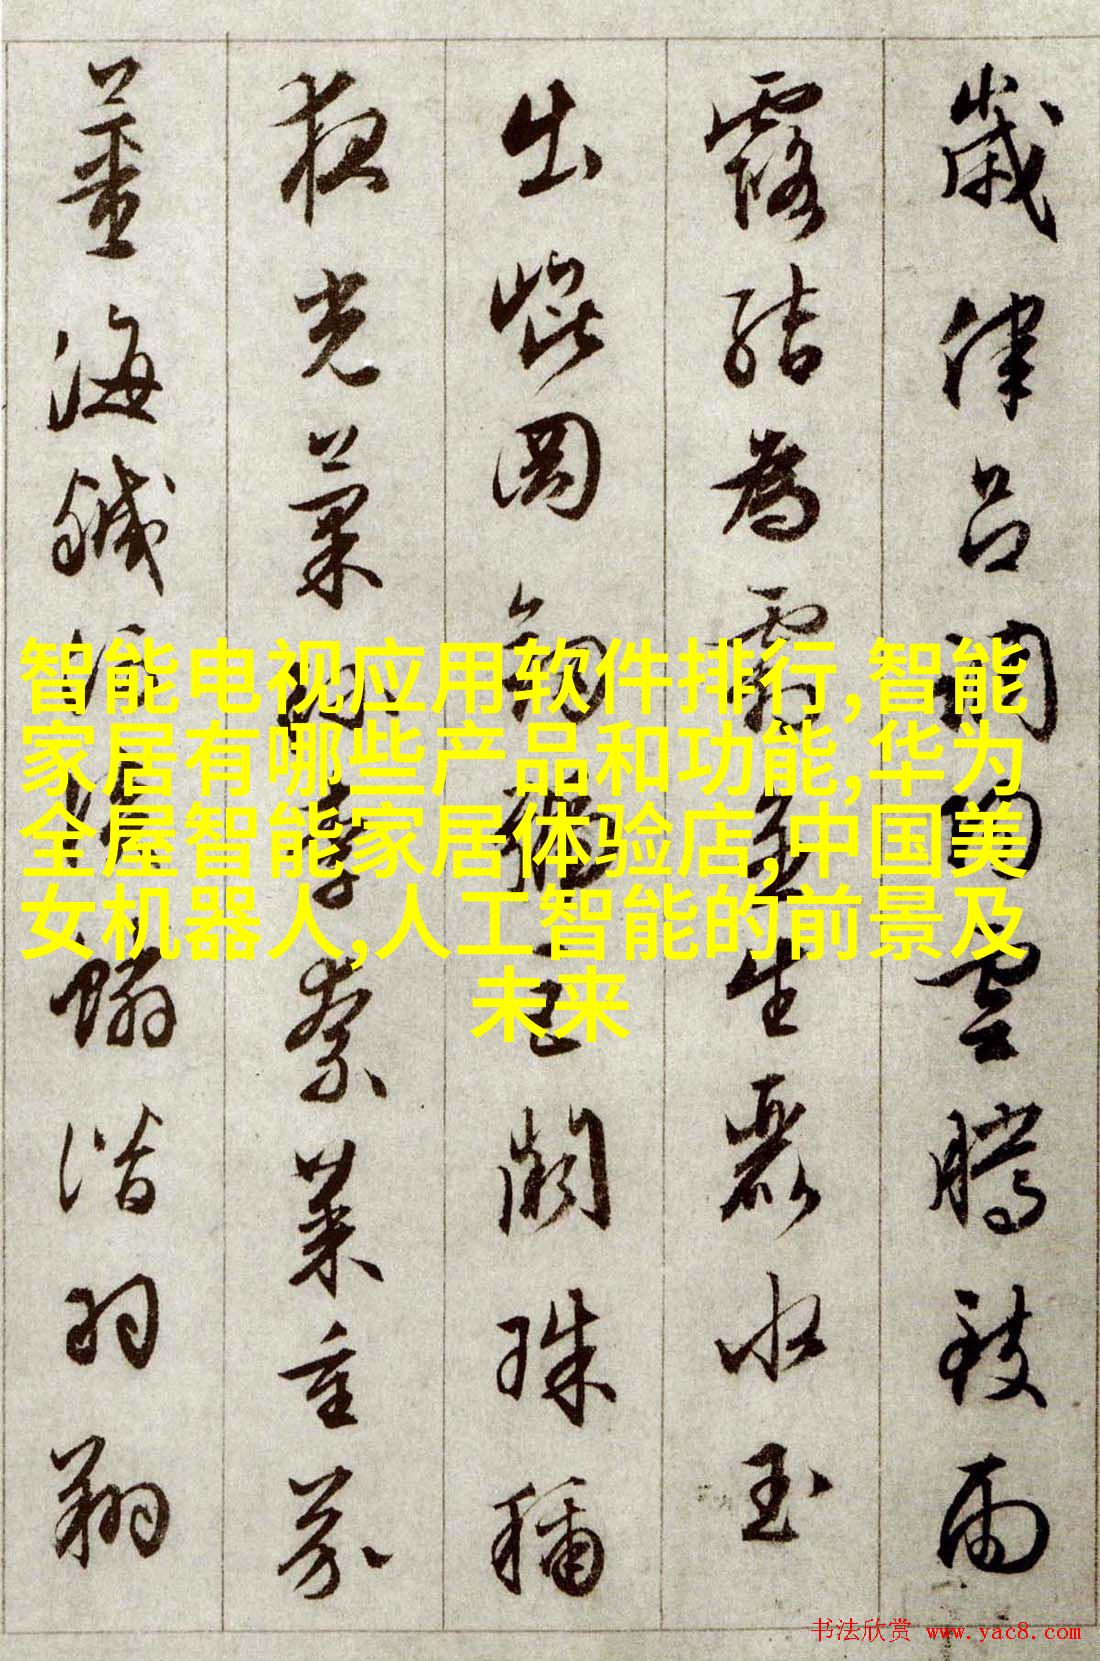 歲律呂調陽雲騰致雨
露結為霜金生麗水玉
出崐岡劍號巨闕珠稱
夜光菓珍李柰菜重芥
薑海鹹河淡鱗潛羽翔
智能电视应用软件排行,智能
家居有哪些产品和功能,华为
全屋智能家居体验店,中国美
女机器人,人工智能的前景及
未来
书法欣赏 www.yac8.com